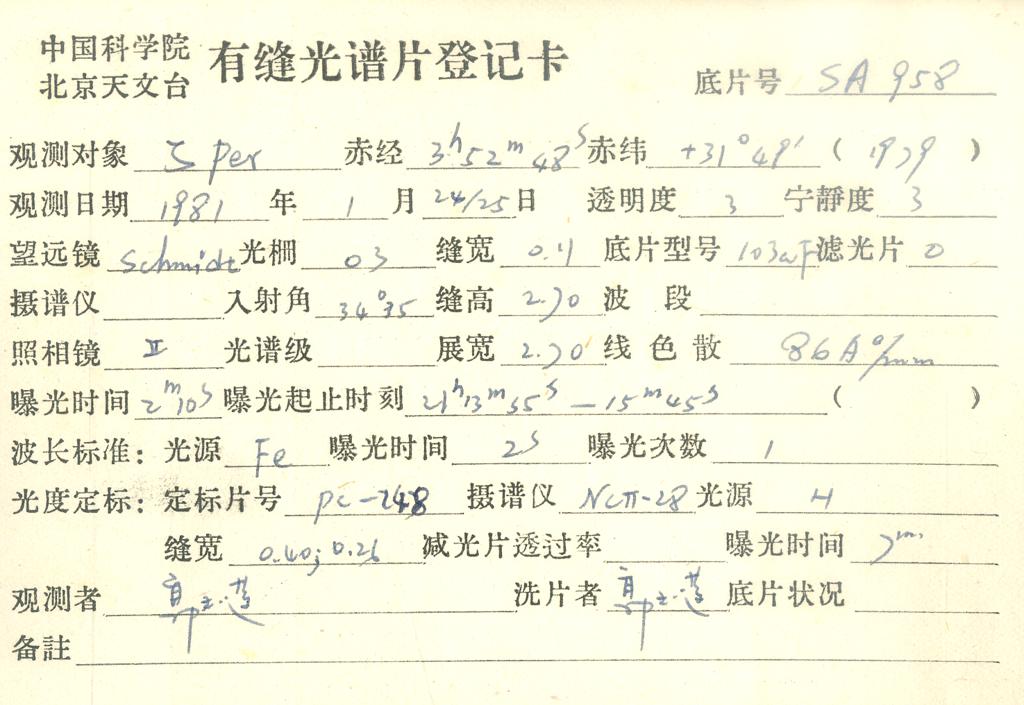 中国科学院
北京天文台
有缝光谱片登记卡
底片号 SA 958
观测对象 ζ Per 赤经 3h52m48s 赤纬 +31°49′ ( 1979 )
观测日期 1981 年 1 月 24/25 日 透明度 3 宁静度 3
望远镜 Schmidt 光栅 03 缝宽 底片型号 103aF 滤光片 0
摄谱仪 入射角 34°35 缝高 2.70 波段
照相镜 II 光谱级 展宽 2.70 线色散 86A°/mm
曝光时间 2m10s 曝光起止时刻 21h13m35s—15m45s ( )
波长标准: 光源 Fe 曝光时间 2s 曝光次数 1
光度定标: 定标片号 pc-248 摄谱仪 光源 H
缝宽 0.40; 0.26 减光片透过率 曝光时间 7m
观测者 洗片者 底片状况
备註